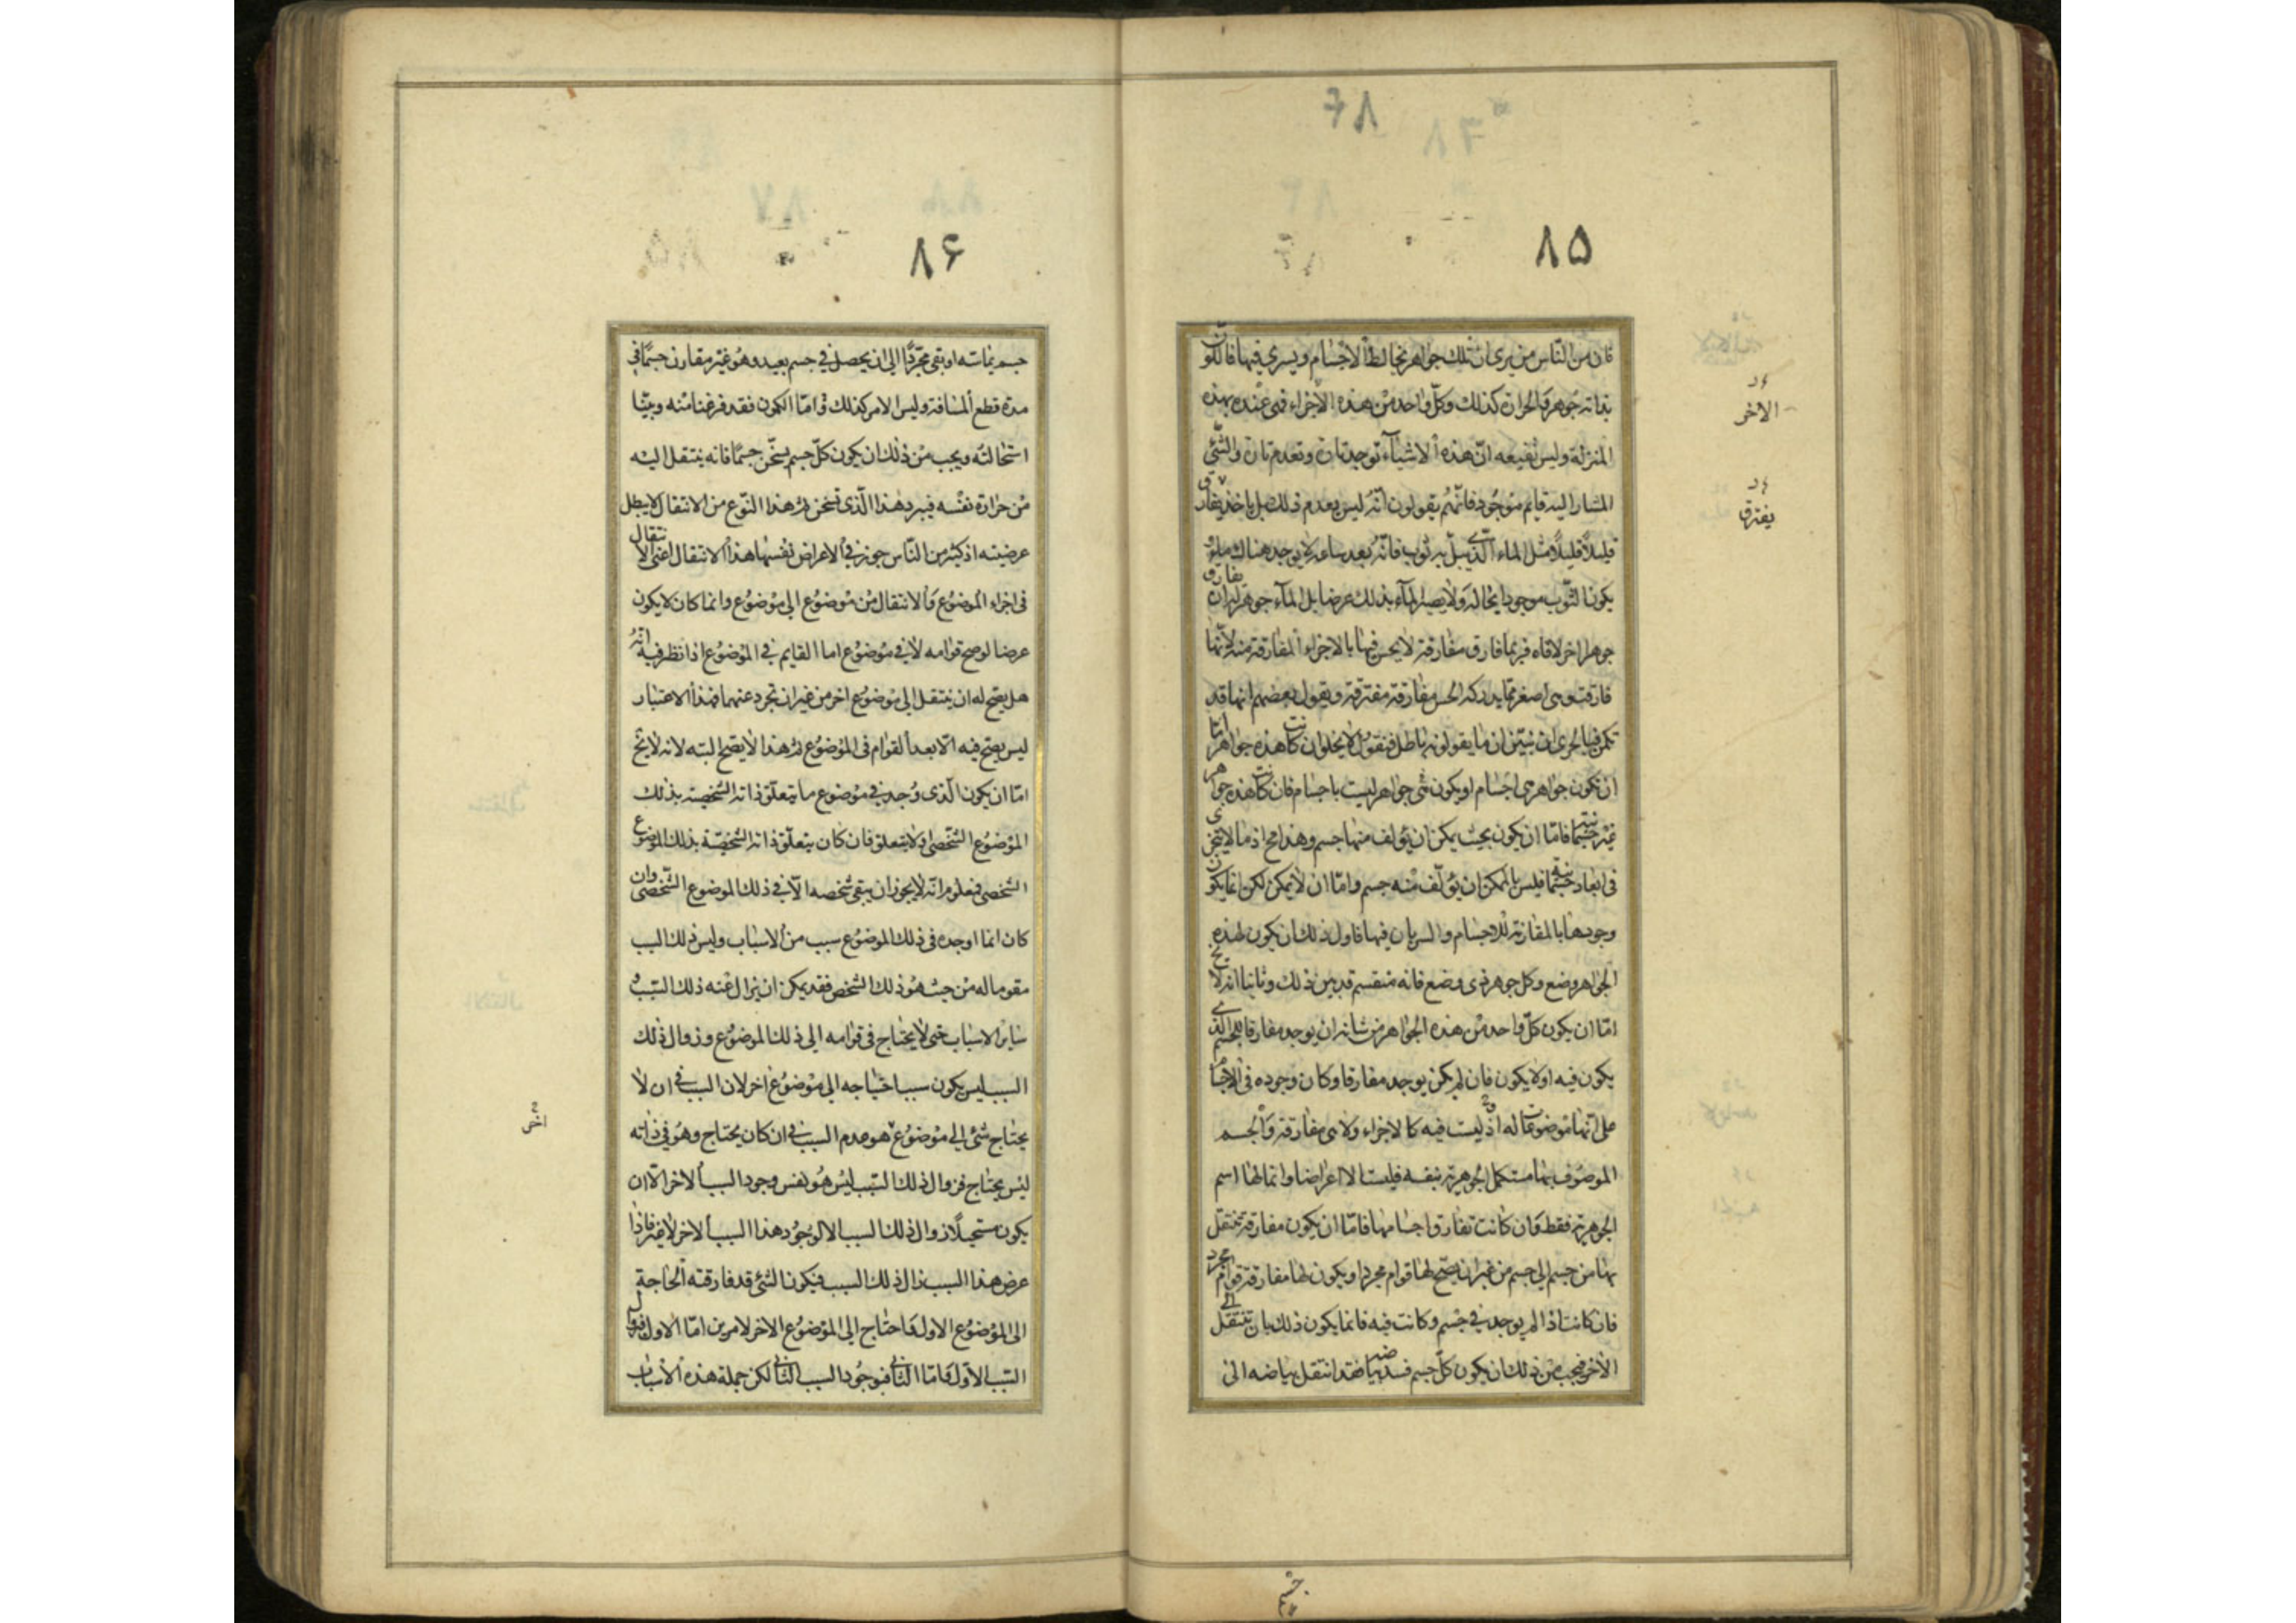 ٨٦
٨٥
فان من الناس من يرى ان تلك جواهر تخالط الاجسام ويسري فيها فاللون
بذاته جوهر والحرارة كذلك وكل واحد من هذه الاخراء فهى عنده بهذه
المنزلة وليس يقنعه ان هذه الاشياء توجد تارة وتعدم تارة والشئ
المشار اليه قايم موجود فانهم يقولون انه ليس يعدم ذلك بل ياخذ يفارق
قليلاً قليلاً مثل الماء الذى يبل به ثوب فانه بعد ساعة لا يوجد هناك ماء و
يكون الثوب موجودا بحاله ولا يصير الماء بذلك عرضا بل الماء جوهر له ان يفارق
جوهرا اخر لاقاه فربما فارق مفارقة لا يحس فيها بالاجزاء المفارقة منه لانها
فارقت وهى اصغر مما يدركه الحس مفارقة مفترقة ويقول بعضهم انها قد
تكمن فبالحرى ان نبين ان ما يقولونه باطل فنقول لا يخلو ان كانت هذه جواهر اما
ان تكون جواهر هى اجسام او يكون هى جواهر ليست باجسام فان كانت هذه جواهر
غير جسمانية فاما ان يكون بحيث يمكن ان يؤلف منها جسم وهذا مح اذ ما لا يتجزى
فى ابعاد جسمانية فليس بالممكن ان يؤلف منه جسم واما ان لا يمكن لكن انما يكون
وجودها بالمقارنة للاجسام والسريان فيها فاول ذلك ان يكون لهذه
الجواهر وضع وكل جوهر ذى وضع فانه منقسم قد بين ذلك وثانيا انه لا يخ
اما ان يكون كل واحد من هذه الجواهر من شانه ان يوجد مفارقا للجسم الذى
يكون فيه او لا يكون فان لم يكن يوجد مفارقا وكان وجوده فى الاجسام
على انها موضوعات له اذ ليست فيه كالاجزاء ولا هى مفارقة والجسم
الموصوف بها مستكمل الجوهرية بنفسه فليست الا اعراضا وانما لها اسم
الجوهرية فقط وان كانت تفارق اجسامها فاما ان يكون مفارقة تنتقل
بها من جسم الى جسم من غير ان يصح لها قوام مجرد او يكون لها مفارقة قوام مجرد
فان كانت اذا لم يوجد فى جسم وكانت فيه فانما يكون ذلك بان تنتقل الى
الاخر فيجب من ذلك ان يكون كل جسم فسد بياضه فقد انتقل بياضه الى
الاخر
يفترق
جسم
٨۶
جسم يماسه او بقى مجردا الى ان يحصل فى جسم بعيد وهو غير مقارن جسما فى
مدة قطع المسافة وليس الامر كذلك واما الكمون فقد فرغنا منه وبينا
استحالته ويجب من ذلك ان يكون كل جسم يسخن جسما فانه ينتقل اليه
من حرارة نفسه فيبرد هذا الذى تسخن ثم هذا النوع من الانتقال لا يبطل
عرضيته اذ كثير من الناس جوز فى الاعراض نفسها هذا الانتقال اعنى الانتقال
فى اجزاء الموضوع والانتقال من موضوع الى موضوع وانما كان لا يكون
عرضا لو صح قوامه لا فى موضوع اما القايم فى الموضوع اذا نظر فيه انه
هل يصح له ان ينتقل الى موضوع اخر من غير ان تجرد عنهما فهذا الاعتبار
ليس يصح فيه الا بعد القوام فى الموضوع ثم هذا لا يصح البته لانه لا يخ
اما ان يكون الذى وجد فى موضوع ما يتعلق ذاته الشخصية بذلك
الموضوع الشخصى او لا يتعلق فان كان يتعلق ذاته الشخصية بذلك الموضوع
الشخصى فمعلوم انه لا يجوز ان يبقى شخصه الا فى ذلك الموضوع الشخصى وان
كان انما اوجده فى ذلك الموضوع سبب من الاسباب وليس ذلك السبب
مقوما له من حيث هو ذلك الشخص فقد يمكن ان يزال عنه ذلك السبب و
ساير الاسباب حتى لا يحتاج فى قوامه الى ذلك الموضوع وزوال ذلك
السبب ليس يكون سببا احتياجه الى موضوع اخر لان السبب فى ان لا
يحتاج شئ الى موضوع هو عدم السبب فى ان كان يحتاج وهو فى ذاته
ليس يحتاج فزوال ذلك السبب ليس هو نفس وجود السبب الاخر الا ان
يكون مستحيلا زوال ذلك السبب الا لوجود هذا السبب الاخر لا غير فاذا
عرض هذا السبب زال ذلك السبب فيكون الشئ قد فارقته الحاجة
الى الموضوع الاول واحتاج الى الموضوع الاخر لامرين اما الاول فزوال
السبب الاول واما الثانى فوجود السبب الثانى لكن جملة هذه الاسباب
اخرى